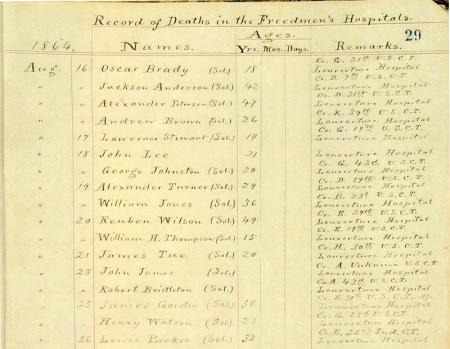 Record of Deaths in the Freedmen's Hospitals.
29
Ages.
1864. Names. Yrs. Mos. Days. Remarks.
Co. G. 31st U.S.C.T.
Aug. 16 Oscar Brady (Sol.) 18 Louverture Hospital
Co. D. 7th U.S.C.T.
" " Jackson Anderson (Sol.) 42 Louverture Hospital
Co. D. 31st U.S.C.T.
" " Alexander Peterson (Sol.) 47 Louverture Hospital
Co. K. 39th U.S.C.T.
" " Andrew Brown (Sol.) 26 Louverture Hospital
Co. G. 19th U.S.C.T.
" 17 Lawrence Stewart (Sol.) 19 Louverture Hospital
" 18 John Lee 21 Louverture Hospital
Co. G. 43d U.S.C.T.
" " George Johnston (Sol.) 20 Louverture Hospital
Co. D. 29th U.S.C.T.
" 19 Alexander Turner (Sol.) 29 Louverture Hospital
Co. B. 23d U.S.C.T.
" " William Jones (Sol.) 36 Louverture Hospital
Co. E. 29th U.S.C.T.
" 20 Reuben Wilson (Sol.) 49 Louverture Hospital
Co. E. 19th U.S.C.T.
" " William H. Thompson (Sol.) 15 Louverture Hospital
Co. H. 30th U.S.C.T.
" 21 James Tue (Sol.) 20 Louverture Hospital
Co. A. Unknown U.S.C.T.
" 23 John James (Sol.) Louverture Hospital
Co. A. 43d U.S.C.T.
" " Robert (Sol.) Louverture Hospital
U.S.C.T.
" 25 James Gordin (Sol.) 30 Louverture Hospital
Co. G. 23d U.S.C.T.
" " Henry Watson (Sol.) 27 Louverture Hospital
Co. B. 22nd Ind. C.T.
" 26 Lewis Parker (Sol.) 32 Louverture Hospital